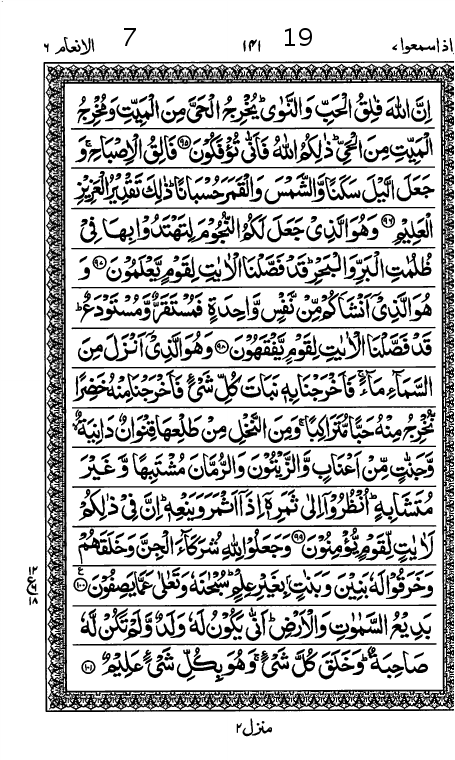 الانعام ٦ 7 ١٤١ 19 واذاسمعوا ٧
اِنَّ اللّٰهَ فٰلِقُ الْحَبِّ وَالنَّوٰىؕ يُخْرِجُ الْحَىَّ مِنَ الْمَيِّتِ وَمُخْرِجُ
الْمَيِّتِ مِنَ الْحَىِّؕ ذٰلِكُمُ اللّٰهُ فَاَنّٰى تُؤْفَكُوْنَ ﴿٩٥﴾ فَالِقُ الْاِصْبَاحِۚ وَ
جَعَلَ الَّيْلَ سَكَنًا وَّالشَّمْسَ وَالْقَمَرَ حُسْبَانًاؕ ذٰلِكَ تَقْدِيْرُ الْعَزِيْزِ
الْعَلِيْمِ ﴿٩٦﴾ وَهُوَ الَّذِىْ جَعَلَ لَكُمُ النُّجُوْمَ لِتَهْتَدُوْا بِهَا فِىْ
ظُلُمٰتِ الْبَرِّ وَالْبَحْرِؕ قَدْ فَصَّلْنَا الْاٰيٰتِ لِقَوْمٍ يَّعْلَمُوْنَ ﴿٩٧﴾ وَ
هُوَ الَّذِىْۤ اَنْشَاَكُمْ مِّنْ نَّفْسٍ وَّاحِدَةٍ فَمُسْتَقَرٌّ وَّمُسْتَوْدَعٌؕ
قَدْ فَصَّلْنَا الْاٰيٰتِ لِقَوْمٍ يَّفْقَهُوْنَ ﴿٩٨﴾ وَهُوَ الَّذِىْۤ اَنْزَلَ مِنَ
السَّمَآءِ مَآءًۚ فَاَخْرَجْنَا بِهٖ نَبَاتَ كُلِّ شَىْءٍ فَاَخْرَجْنَا مِنْهُ خَضِرًا
نُّخْرِجُ مِنْهُ حَبًّا مُّتَرَاكِبًاۚ وَمِنَ النَّخْلِ مِنْ طَلْعِهَا قِنْوَانٌ دَانِيَةٌ
وَّجَنّٰتٍ مِّنْ اَعْنَابٍ وَّالزَّيْتُوْنَ وَالرُّمَّانَ مُشْتَبِهًا وَّغَيْرَ
مُتَشَابِهٍؕ اُنْظُرُوْۤا اِلٰى ثَمَرِهٖۤ اِذَاۤ اَثْمَرَ وَيَنْعِهٖؕ اِنَّ فِىْ ذٰلِكُمْ
لَاٰيٰتٍ لِّقَوْمٍ يُّؤْمِنُوْنَ ﴿٩٩﴾ وَجَعَلُوْا لِلّٰهِ شُرَكَآءَ الْجِنَّ وَخَلَقَهُمْ
وَخَرَقُوْا لَهٗ بَنِيْنَ وَبَنٰتٍۢ بِغَيْرِ عِلْمٍؕ سُبْحٰنَهٗ وَتَعٰلٰى عَمَّا يَصِفُوْنَ ﴿١٠٠﴾
١٢
ع ٦
١٨
بَدِيْعُ السَّمٰوٰتِ وَالْاَرْضِؕ اَنّٰى يَكُوْنُ لَهٗ وَلَدٌ وَّلَمْ تَكُنْ لَّهٗ
صَاحِبَةٌؕ وَخَلَقَ كُلَّ شَىْءٍۚ وَهُوَ بِكُلِّ شَىْءٍ عَلِيْمٌ ﴿١٠١﴾
منزل ٢